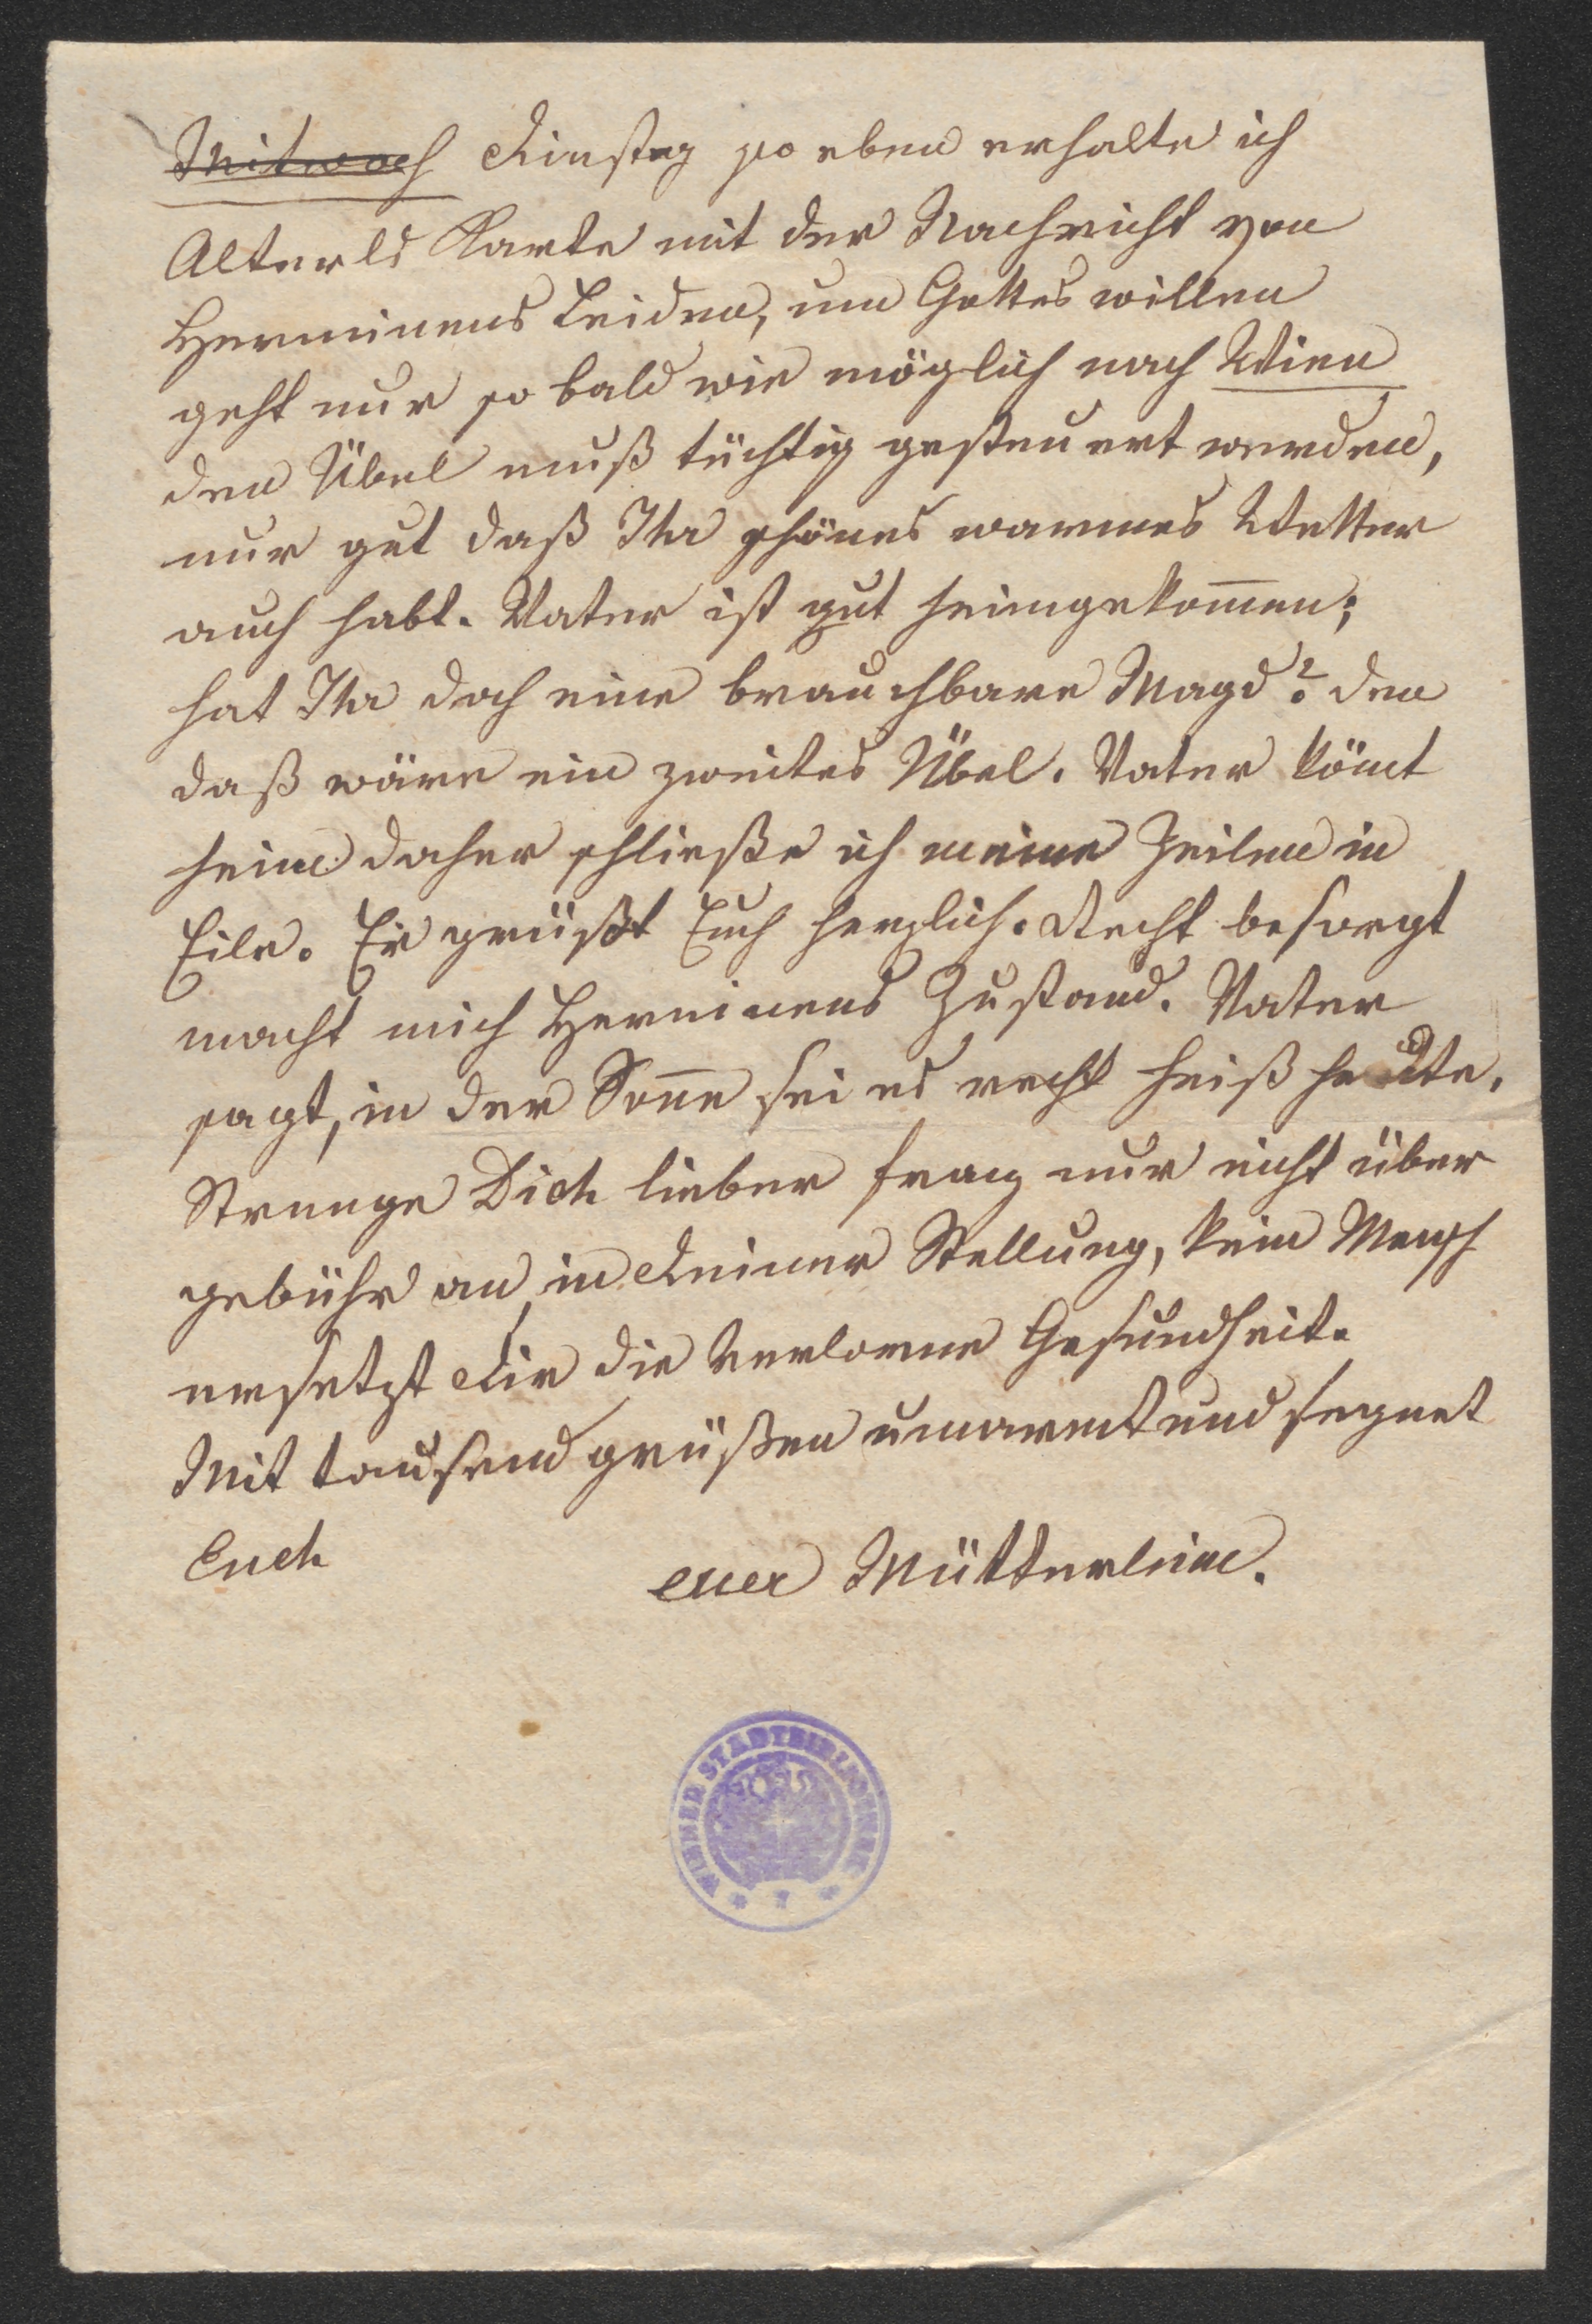 Mitwoch Dinstag so eben erhalte ich
Alterls Karte mit der Nachricht von
Herminens Leiden, um Gottes willen
geht nur so bald wie möglich nach Wien
den Übel muß tüchtig gesteuert werden,
nur gut daß Ihr schönes warmes Wetter
auch habt. Vater ist gut heimgekom̅en;
hat Ihr doch eine brauchbare Magd? den
daß wäre ein zweites Übel. Vater köm̅t
heim daher schließe ich meine Zeilen in
Eile. Er grüßt Euch herzlich. Recht besorgt
macht mich Herminens Zustand. Vater
sagt, in der Son̅e sei es recht heiß heute.
Strenge Dich lieber franz nur nicht über
gebühr an, in Deiner Stellung, kein Mensch
ersetzt Dir die Verlorne Gesundheit.
Mit tausend grüßen umarmt und segnet
Euch euer Mütterlein.
WIENER STADTBIBLIOTHEK